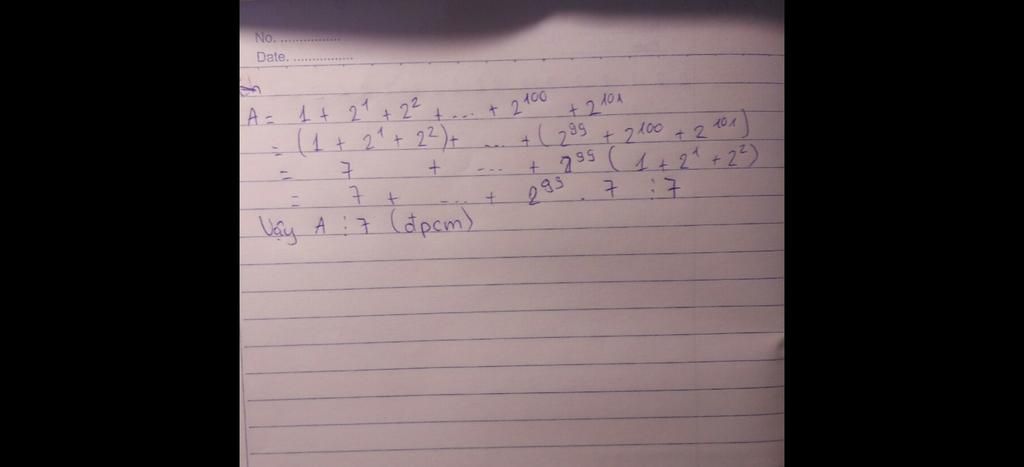 No. ................
Date. ................
A = 1 + 2¹ + 2² + ... + 2¹⁰⁰ + 2¹⁰¹
= (1 + 2¹ + 2²) + ... + (2⁹⁹ + 2¹⁰⁰ + 2¹⁰¹)
= 7 + ... + 2⁹⁹ (1 + 2¹ + 2²)
= 7 + ... + 2⁹⁹ . 7 ⋮ 7
Vậy A ⋮ 7 (đpcm)